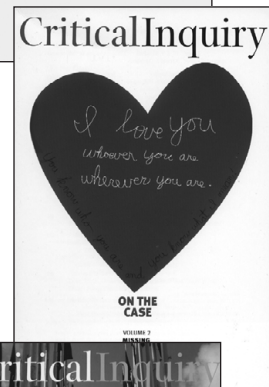 CriticalInquiry
I love you
whoever you are
wherever you are.
ON THE
CASE
VOLUME 2
MISSING
riticalInquiry